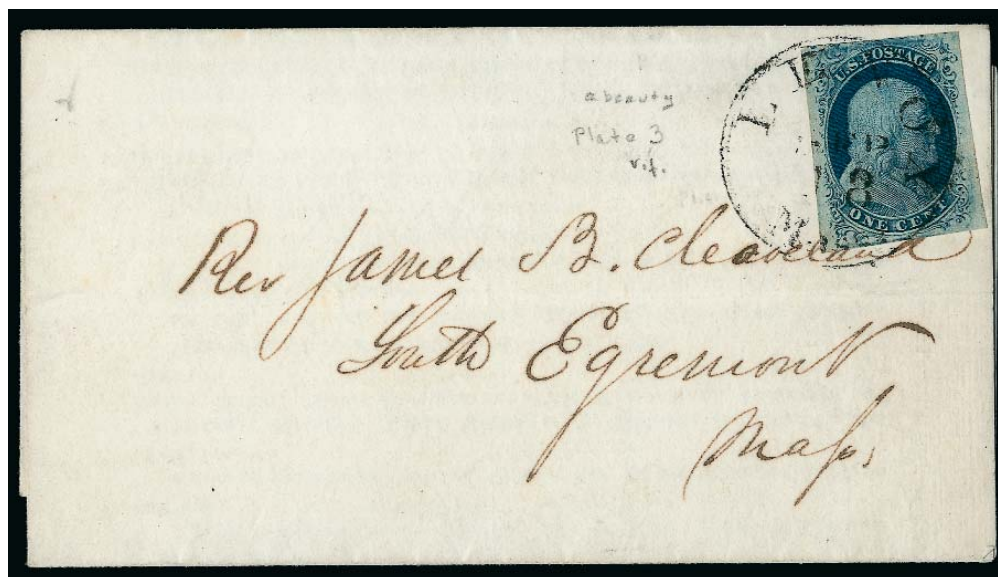 a beauty
Plate 3
v.f.
U.S. POSTAGE
ONE CENT
LENOX
Mass
Rev James B. Cleaveland
South Egremont
Maſs.